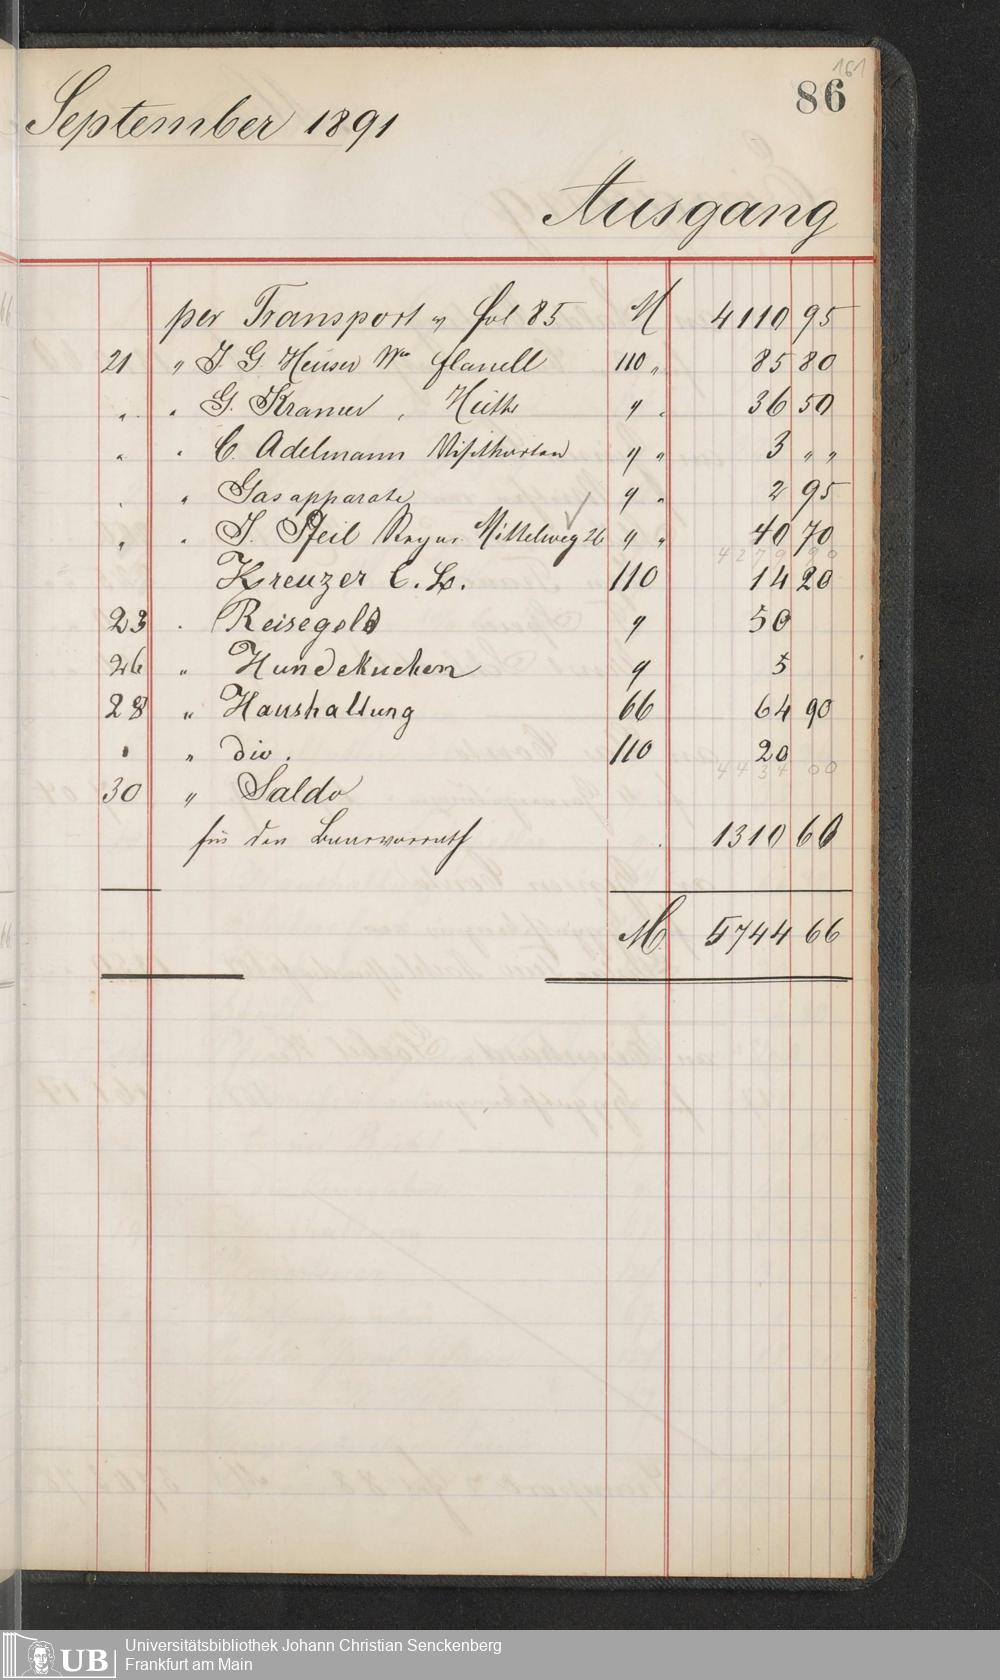 161
86
September 1891
Ausgang
per Transport v fol 85 M 4110 95
21 " J. G. Heuser Wwe flanell 110 " 85 80
" " G. Kramer, Hüthe " " 36 50
" " C. Adelmann Visitkarten " " 3 " "
" " Gasapparate " " 2 95
" " J. Pfeil Mittelweg 26 " " 40 70
4279 90
Kreuzer C. L. 110 14 20
23 " Reisegeld " 50
26 " Hundekuchen " 5
28 " Haushaltung 66 64 90
" " div. 110 20
4434 00
30 " Saldo
für den Baarvorrath 1310 66
M 5744 66
UB
Universitätsbibliothek Johann Christian Senckenberg
Frankfurt am Main